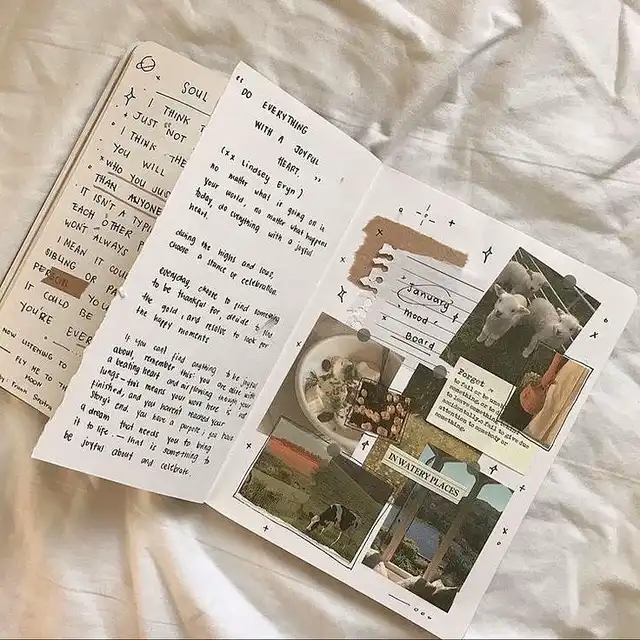 SOUL
I THINK
JUST NOT
I THINK THE
YOU WILL
WHO YOU JUS
THAN ANYONE
IT ISN'T A TYPI
EACH OTHER
WON'T ALWAYS
I MEAN IT COUL
SIBLING OR PA
PERSON. YOU
IT COULD BE
YOU'RE EVER
NOW LISTENING TO
FLY ME TO TH
MOON
"DO EVERYTHING
WITH A JOYFUL
HEART."
(xx Lindsey Eryn)
no matter what is going on in
your world, no matter what happens
today, do everything with a joyful
heart.
during the highs and lows,
choose a stance of celebration.
everyday, choose to find something
to be thankful for, decide to
the gold, and resolve to look for
the happy moments
If you can't find anything to be joyful
about, remember this: you are alive with
a beating heart and air flowing through your
lungs - this means your work here is not
finished, and you haven't reached your
story's end. you have a purpose, you have
a dream that needs you to bring
it to life - that is something to
be joyful about and celebrate.
January
Mood
Board
Forget
to fail or be
something or to
to leave something
accidently. fail to give due
attention to somebody or
something.
IN WATERY PLACES